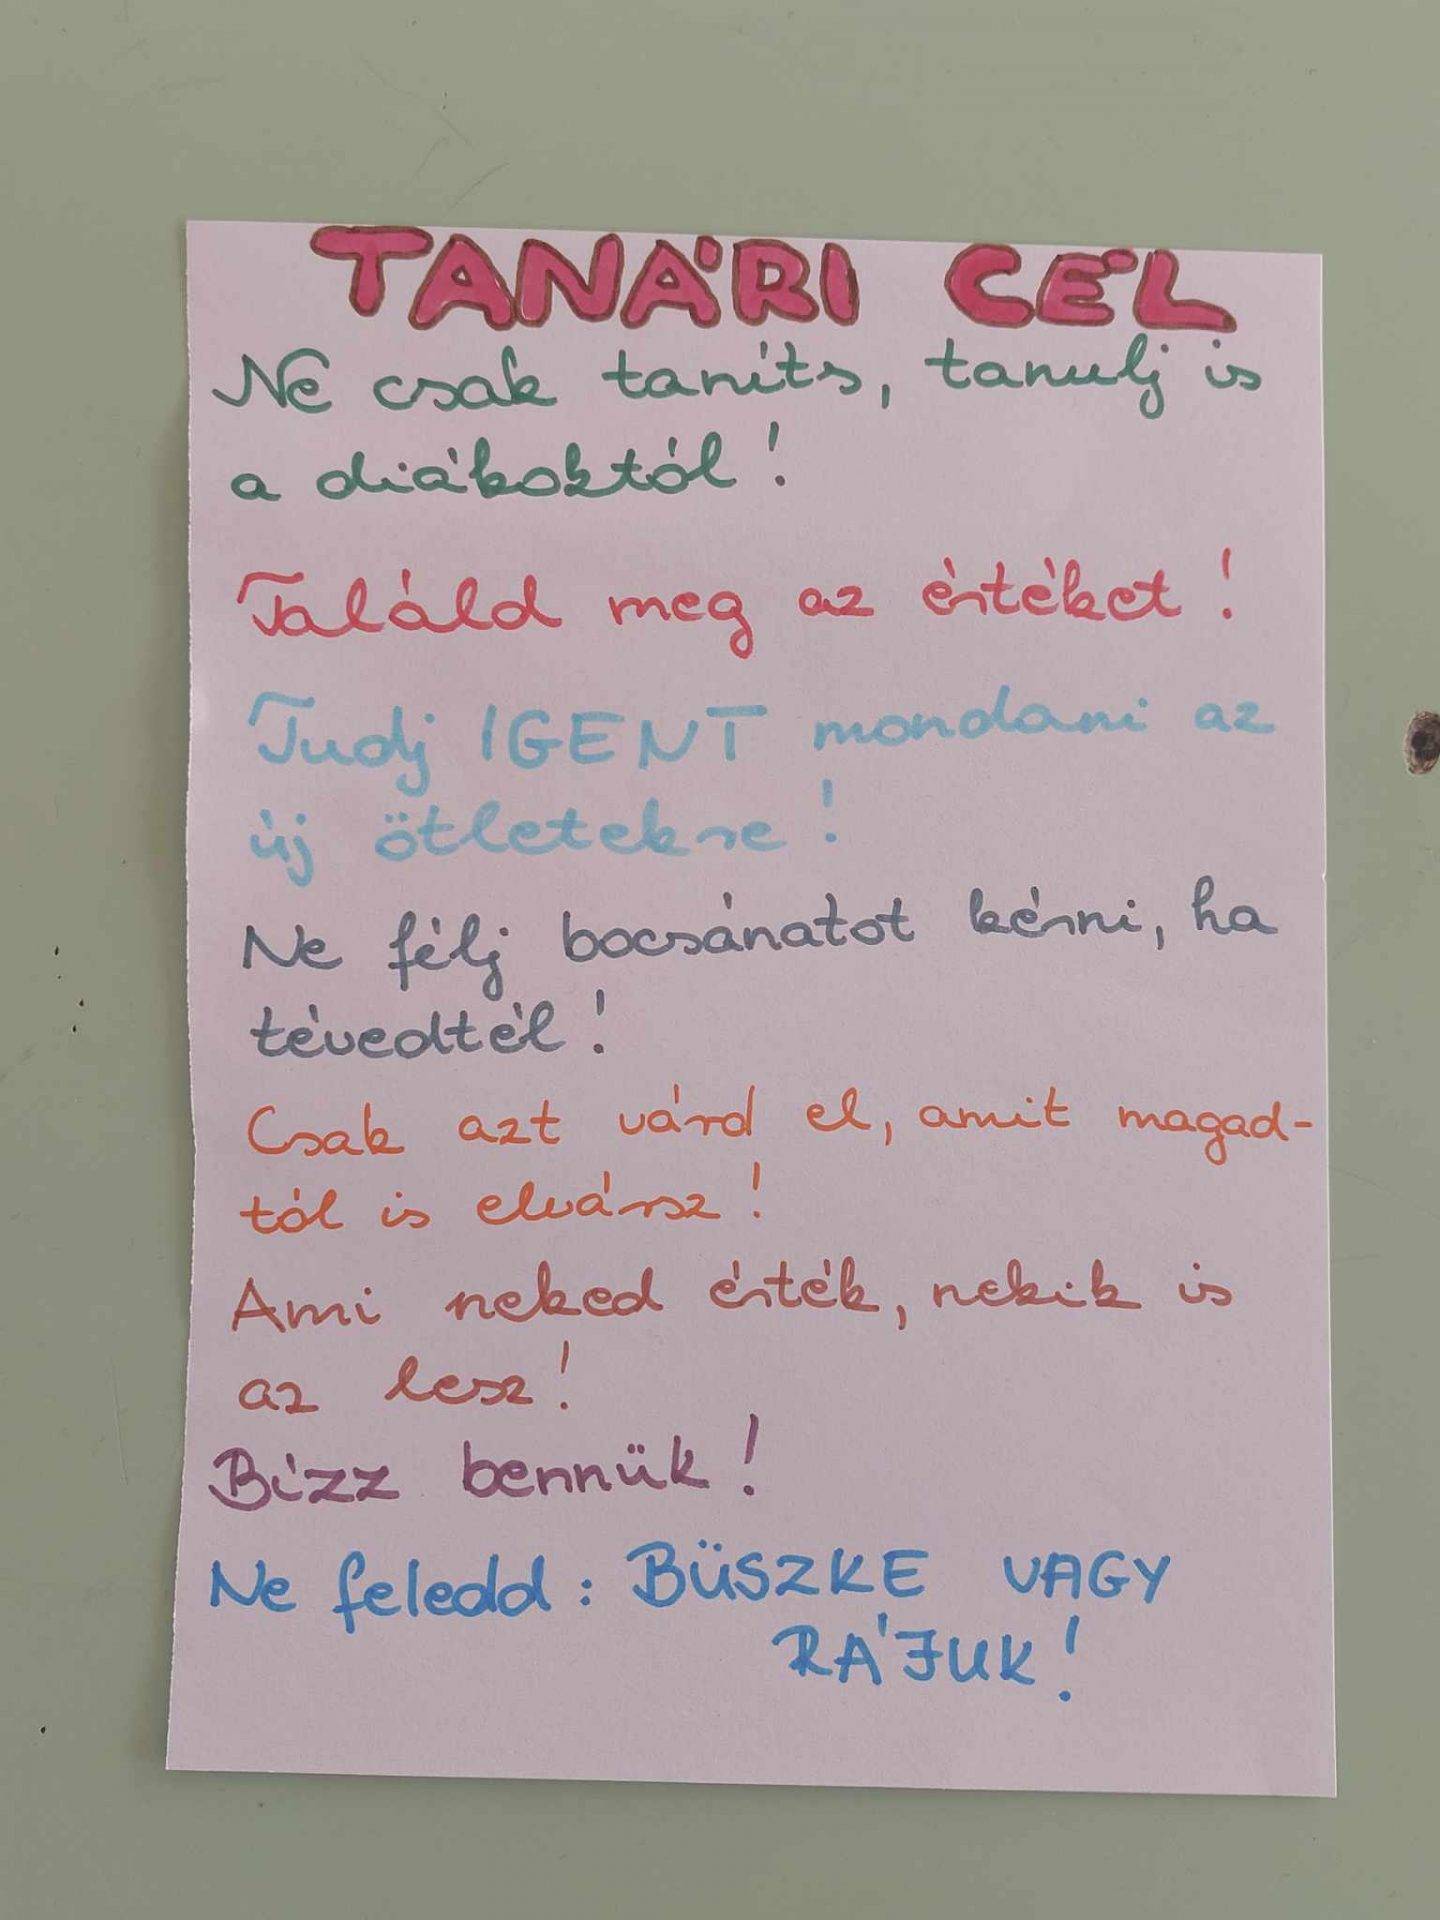 TANÁRI CÉL
Ne csak taníts, tanulj is
a diákoktól!
Találd meg az értéket!
Tudj IGENT mondani az
új ötletekre!
Ne félj bocsánatot kérni, ha
tévedtél!
Csak azt várd el, amit magad-
tól is elvársz!
Ami neked érték, nekik is
az lesz!
Bízz bennük!
Ne feledd: BÜSZKE VAGY
RÁJUK!